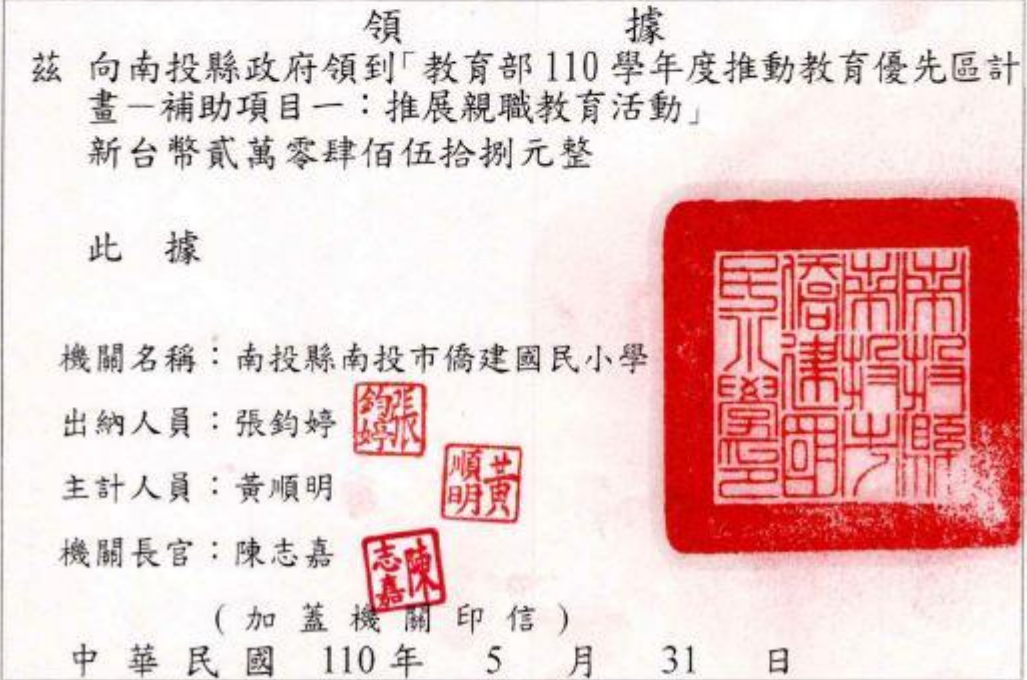 領 據
茲 向南投縣政府領到「教育部 110 學年度推動教育優先區計
畫－補助項目一：推展親職教育活動」
新台幣貳萬零肆佰伍拾捌元整
此 據
南投縣
南投市
僑建國
民小學印
機關名稱：南投縣南投市僑建國民小學
出納人員：張鈞婷
張
鈞婷
主計人員：黃順明
黃
順明
機關長官：陳志嘉
陳
志嘉
(加蓋機關印信)
中 華 民 國 110 年 5 月 31 日